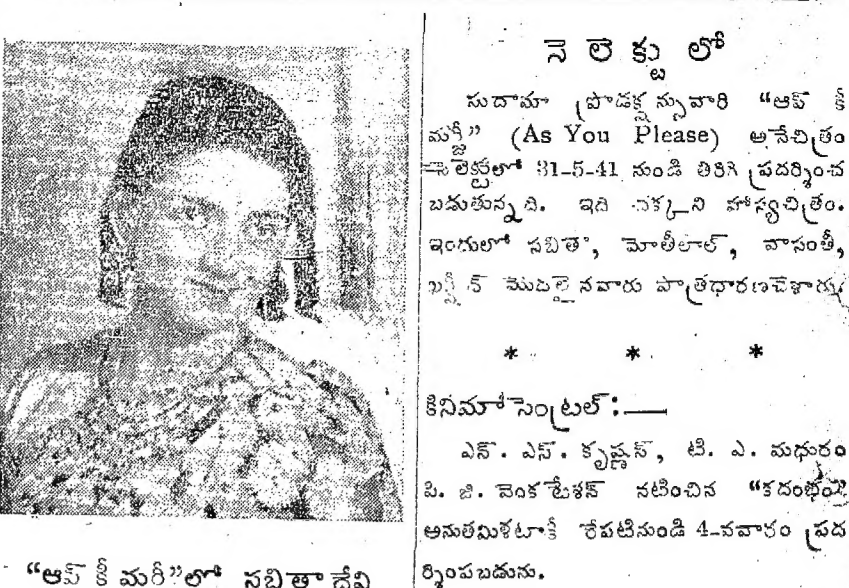 సెలెక్టు లో
సుదామా ప్రొడక్షన్సువారి “ఆప్ కీ
మర్జీ” (As You Please) అనేచిత్రం
సెలెక్టులో 31-5-41 నుండి తిరిగి ప్రదర్శించ
బడుతున్నది. ఇది చక్కని హాస్యచిత్రం.
ఇందులో సబితా, మోతీలాల్, వాసంతీ,
మొదలైనవారు పాత్రధారణచేశారు.
* * *
కినిమా సెంట్రల్ :—
ఎన్. ఎస్. కృష్ణన్, టి. ఎ. మధురం
పి. జి. వెంకటేశన్ నటించిన “కదంభం”
అనుతమిళటాకీ రేపటినుండి 4-వవారం ప్రద
ర్శింపబడును.
“ఆప్ కీ మర్జీ”లో సబితా దేవి